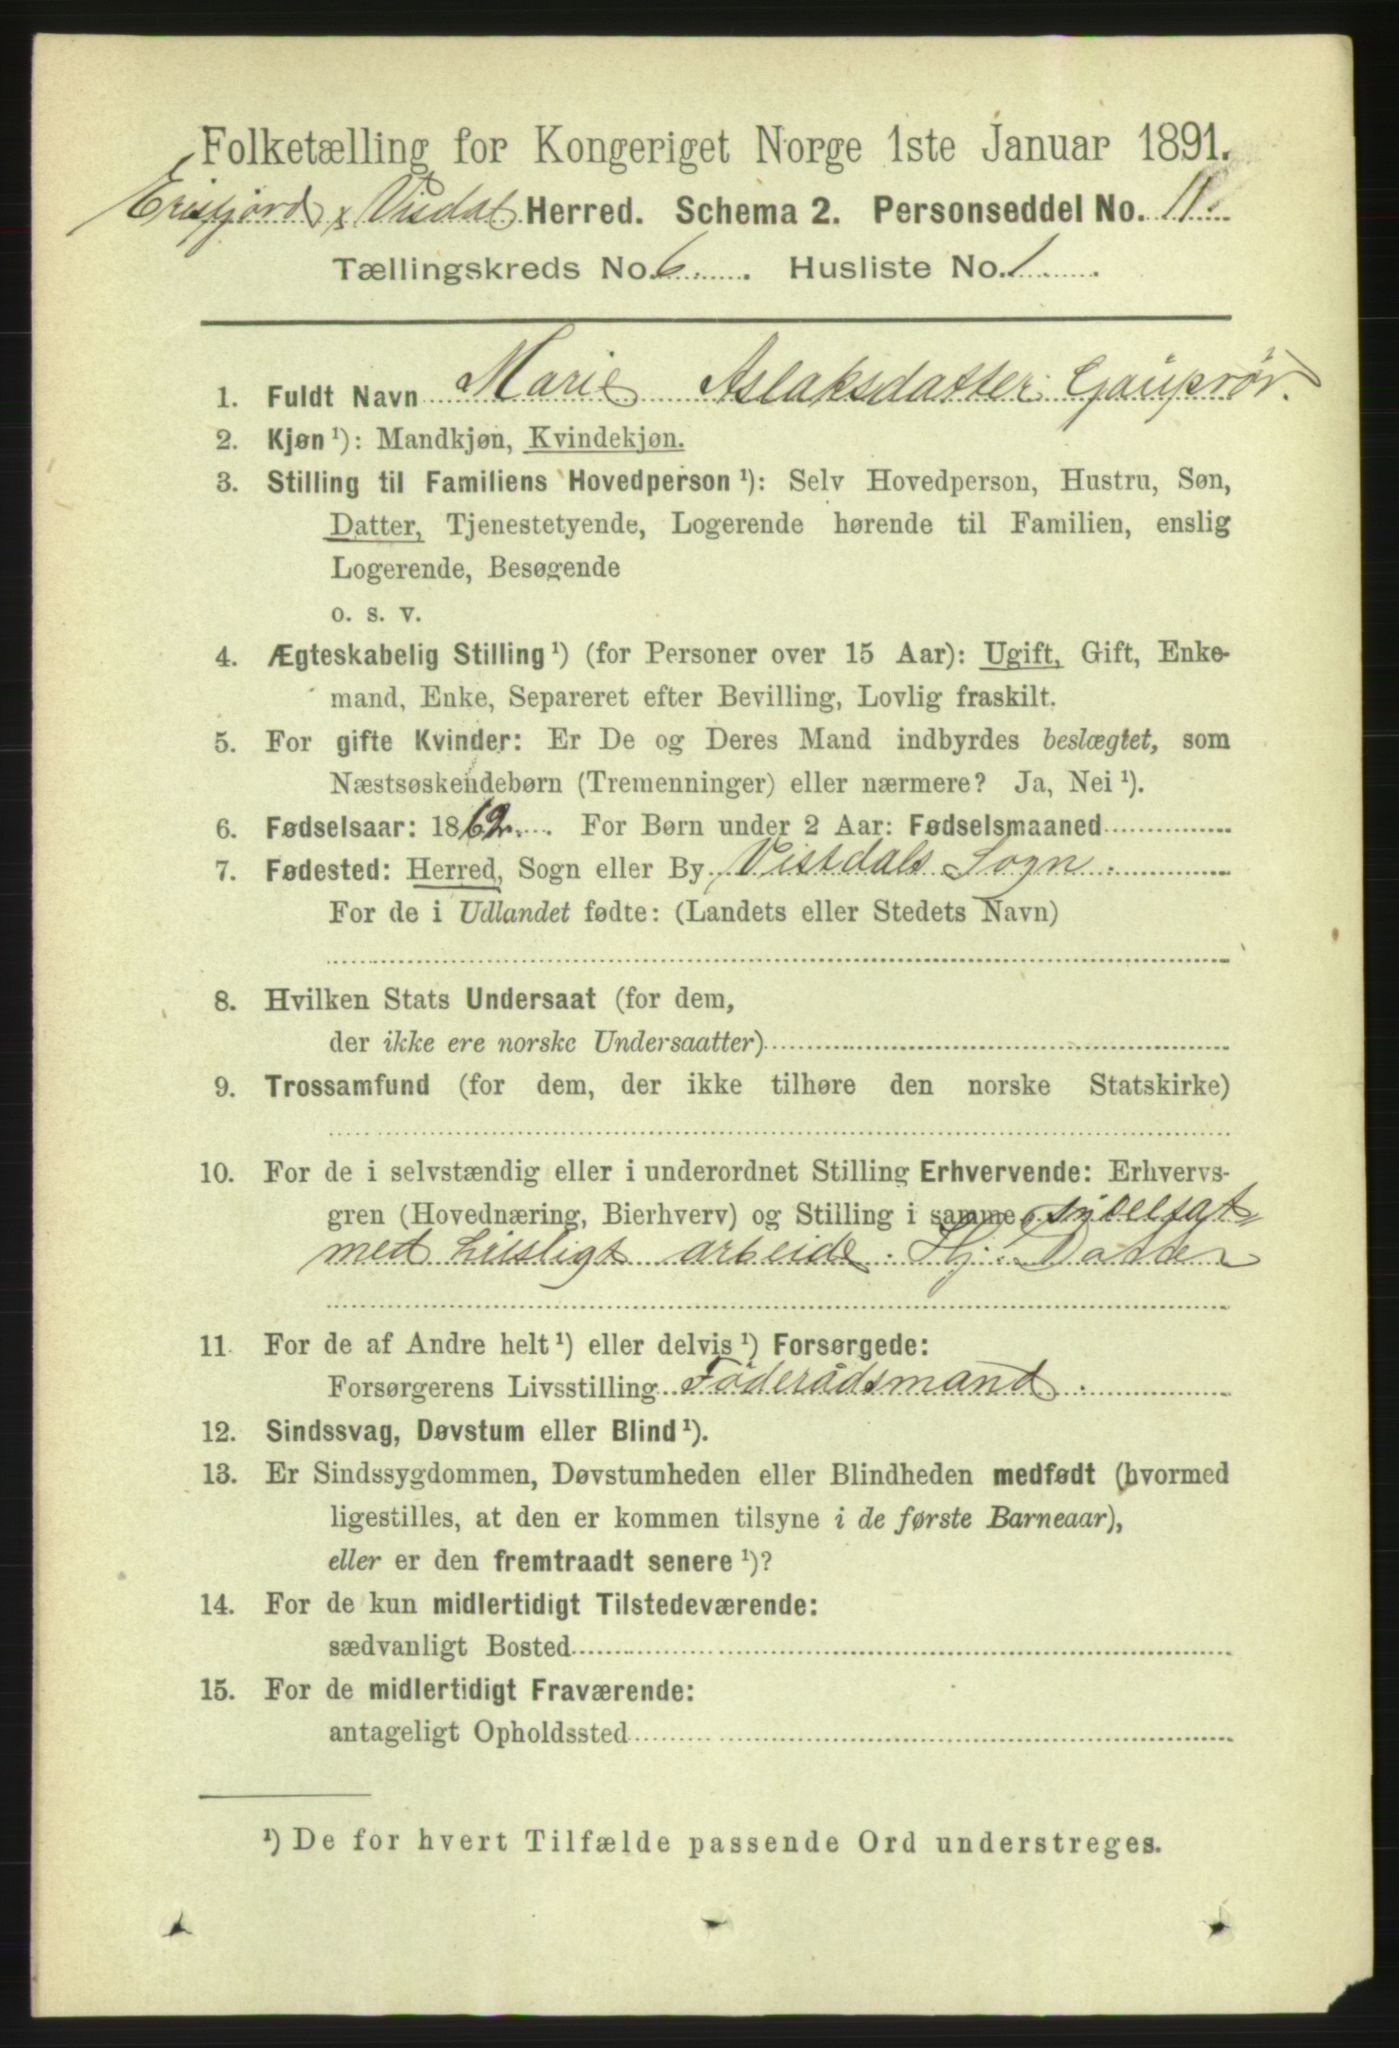 Folketælling for Kongeriget Norge 1ste Januar 1891.
Erisfjord & Visdal Herred. Schema 2. Personseddel No. 11.
Tællingskreds No. 6. Husliste No. 1.
1. Fuldt Navn Marie Aslaksdatter Gauprør.
2. Kjøn ¹): Mandkjøn, Kvindekjøn.
3. Stilling til Familiens Hovedperson ¹): Selv Hovedperson, Hustru, Søn,
Datter, Tjenestetyende, Logerende hørende til Familien, enslig
Logerende, Besøgende
o. s. v.
4. Ægteskabelig Stilling ¹) (for Personer over 15 Aar): Ugift, Gift, Enke-
mand, Enke, Separeret efter Bevilling, Lovlig fraskilt.
5. For gifte Kvinder: Er De og Deres Mand indbyrdes beslægtet, som
Næstsøskendebørn (Tremenninger) eller nærmere? Ja, Nei ¹).
6. Fødselsaar: 1862. For Børn under 2 Aar: Fødselsmaaned
7. Fødested: Herred, Sogn eller By Vistdals Sogn.
For de i Udlandet fødte: (Landets eller Stedets Navn)
8. Hvilken Stats Undersaat (for dem,
der ikke ere norske Undersaatter)
9. Trossamfund (for dem, der ikke tilhøre den norske Statskirke)
10. For de i selvstændig eller i underordnet Stilling Erhvervende: Erhvervs-
gren (Hovednæring, Bierhverv) og Stilling i samme sysselsat
med husligt arbeide. Hj: Datter
11. For de af Andre helt ¹) eller delvis ¹) Forsørgede:
Forsørgerens Livsstilling Føderådsmand.
12. Sindssvag, Døvstum eller Blind ¹).
13. Er Sindssygdommen, Døvstumheden eller Blindheden medfødt (hvormed
ligestilles, at den er kommen tilsyne i de første Barneaar),
eller er den fremtraadt senere ¹)?
14. For de kun midlertidigt Tilstedeværende:
sædvanligt Bosted
15. For de midlertidigt Fraværende:
antageligt Opholdssted
¹) De for hvert Tilfælde passende Ord understreges.